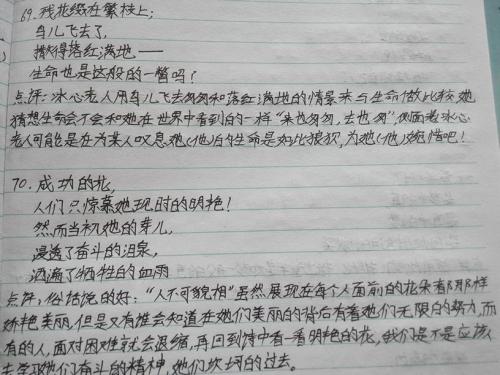 69. 残花缀在繁枝上；
鸟儿飞去了，
撒得落红满地——
生命也是这般的一瞥吗？
点评：冰心老人用鸟儿飞去匆匆和落红满地的情景来与生命做比较她
猜想生命会不会和她在世界中看到的一样“来也匆匆，去也匆”侧面老冰心
老人可能是在为某人叹息她(他)的生命是如此狼狈，为她(他)惋惜吧！
70. 成功的花，
人们只惊慕她现时的明艳！
然而当初她的芽儿，
浸透了奋斗的泪泉，
洒遍了牺牲的血雨
点评：俗话说的好：“人不可貌相”虽然展现在每个人面前的花朵看那那样
娇艳美丽，但是又有谁会知道在她们美丽的背后有着她们无限的努力，而
有的人，面对困难就会退缩，再回到诗中看一看明艳的花，我们是不是应该
去学习她们奋斗的精神，她们坎坷的过去。